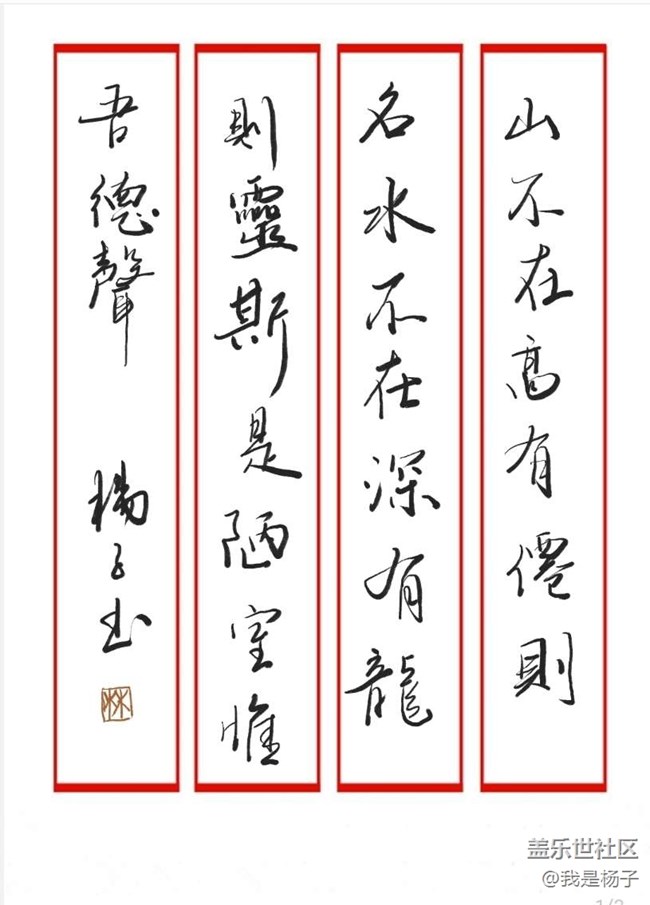 山不在高有僊則
名水不在深有龍
則靈斯是陋室惟
吾德聲
楊子书
盖乐世社区
@我是杨子
1/2